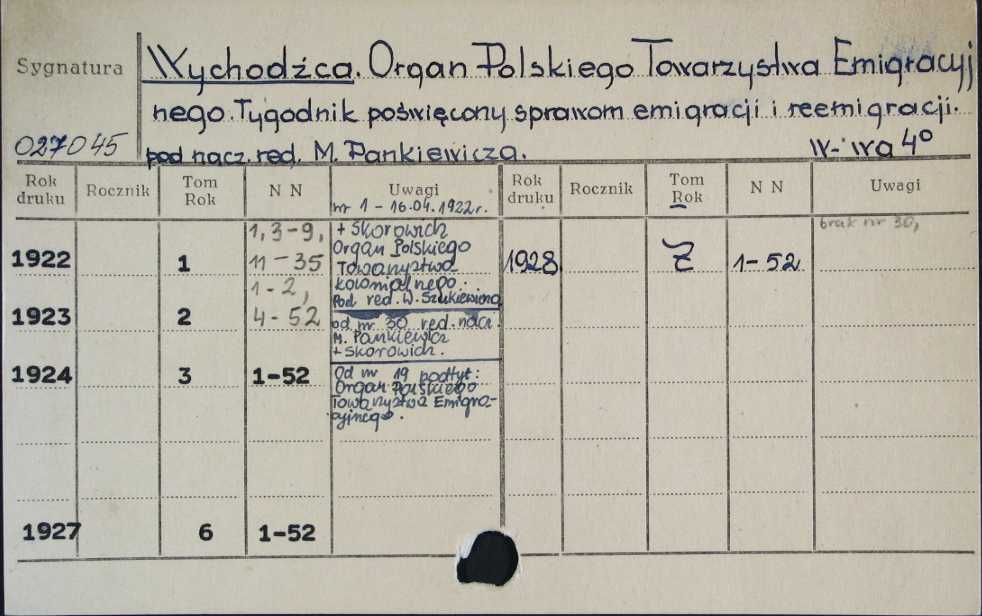 Sygnatura
Wychodźca. Organ Polskiego Towarzystwa Emigracyj
nego. Tygodnik poświęcony sprawom emigracji i reemigracji.
027045
pod nacz. red. M. Pankiewicza. W-wa 4°
Rok druku Rocznik Tom Rok N N Uwagi Rok druku Rocznik Tom Rok N N Uwagi
nr 1 - 16.04.1922r.
brak nr 30,
1922 1 1, 3-9, 11-35
+ skorowidz
Organ Polskiego
Towarzystwa
Kolonialnego.
Pod red. W. Szukiewicza
1928 7 1-52
1923 2 1-2, 4-52
od nr 30 red. nacz.
M. Pankiewicz
+ skorowidz.
1924 3 1-52
Od nr 19 podtyt:
Organ Polskiego
Towarzystwa Emigra-
cyjnego.
1927 6 1-52